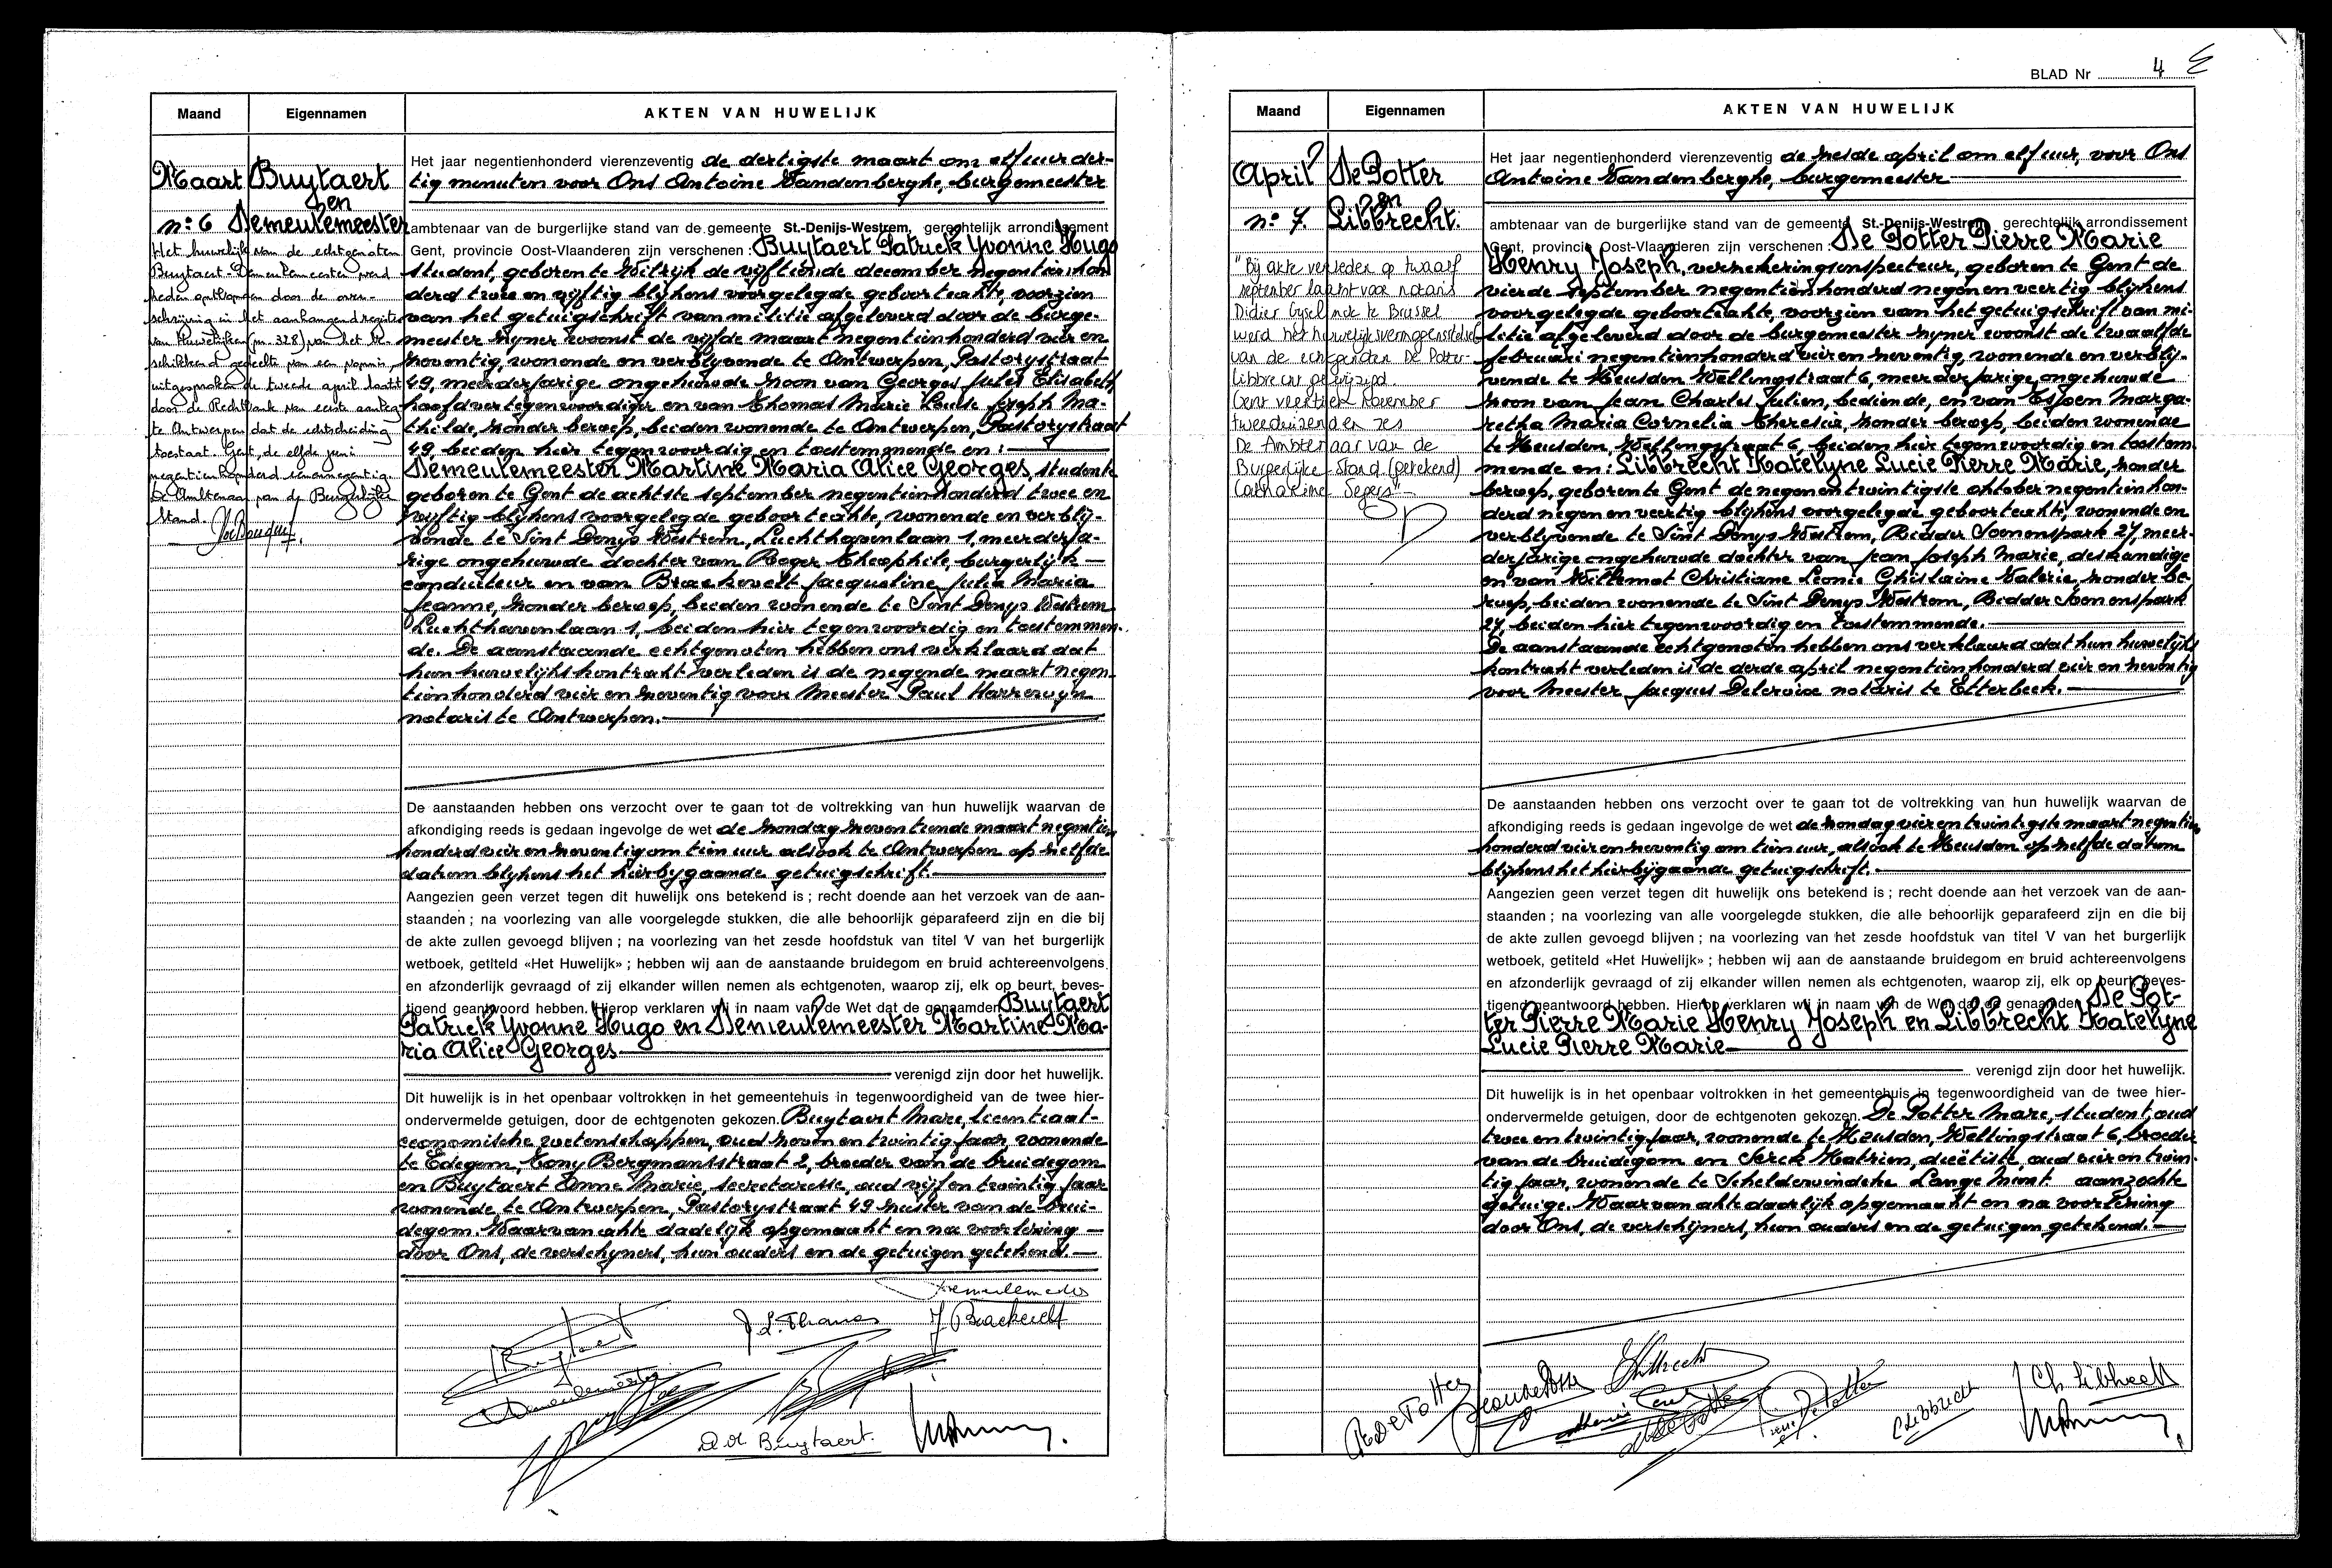 Maand
Eigennamen
AKTEN VAN HUWELIJK
Maart
n: 6
Buytaert
en
Demeulemeester
Het huwelijk van de echtgenoten
Buytaert Demeulemeester werd
heden ontbonden door de over-
schrijving in het aanhangend register
van Huwelijken (nr. 328) van het be-
schikkend gedeelte van een vonnis
uitgesproken de tweede april laatst
door de Rechtbank van eerste aanleg
te Antwerpen dat de echtscheiding
toestaat. Gent, de elfde juni
negentienhonderd eenennegentig
De Ambtenaar van de Burgerlijke
Stand.
Het jaar negentienhonderd vierenzeventig de dertigste maart om elf uur der-
tig minuten voor Ons Antoine Vandenberghe, burgemeester
ambtenaar van de burgerlijke stand van de gemeente St.-Denijs-Westrem, gerechtelijk arrondissement
Gent, provincie Oost-Vlaanderen zijn verschenen : Buytaert Patrick Yvonne Hugo
student, geboren te Wilrijk de vijftiende december negentienhon
derd twee en vijftig blijkens voorgelegde geboorteakte, voorzien
van het getuigschrift van militie afgeleverd door de burge-
meester zijner woonst de vijfde maart negentienhonderd vier en
zeventig, wonende en verblijvende te Antwerpen, Pastorijstraat
49, meerderjarige ongehuwde zoon van Georges Jules Elisabeth,
hoofdvertegenwoordiger en van Thomas Marie Louise Joseph Ma-
thilde, zonder beroep, beiden wonende te Antwerpen, Pastorijstraat
49, beiden hier tegenwoordig en toestemmende en :
Demeulemeester Martine Maria Alice Georges, studente
geboren te Gent de achtste september negentienhonderd twee en
vijftig blijkens voorgelegde geboorteakte, wonende en verblij-
vende te Sint Denys Westrem, Luchthavenlaan 1, meerderja-
rige ongehuwde dochter van Roger Theophile, burgerlijk
conducteur en van Braekevelt Jacqueline Julia Maria
Jeanne, zonder beroep, beiden wonende te Sint Denys Westrem
Luchthavenlaan 1, beiden hier tegenwoordig en toestemmen-
de. De aanstaande echtgenoten hebben ons verklaard dat
hun huwelijkskontrakt verleden is de negende maart negen-
tienhonderd vier en zeventig voor Meester Paul Harrewijn
notaris te Antwerpen.
De aanstaanden hebben ons verzocht over te gaan tot de voltrekking van hun huwelijk waarvan de
afkondiging reeds is gedaan ingevolge de wet de zondag zeventiende maart negentien
honderd vier en zeventig om tien uur alsook te Antwerpen op zelfde
datum blijkens het hierbijgaande getuigschrift.
Aangezien geen verzet tegen dit huwelijk ons betekend is ; recht doende aan het verzoek van de aan-
staanden ; na voorlezing van alle voorgelegde stukken, die alle behoorlijk geparafeerd zijn en die bij
de akte zullen gevoegd blijven ; na voorlezing van het zesde hoofdstuk van titel V van het burgerlijk
wetboek, getiteld «Het Huwelijk» ; hebben wij aan de aanstaande bruidegom en bruid achtereenvolgens
en afzonderlijk gevraagd of zij elkander willen nemen als echtgenoten, waarop zij, elk op beurt, beves-
tigend geantwoord hebben. Hierop verklaren wij in naam van de Wet dat de genaamden Buytaert
Patrick Yvonne Hugo en Demeulemeester Martine Ma-
ria Alice Georges
verenigd zijn door het huwelijk.
Dit huwelijk is in het openbaar voltrokken in het gemeentehuis in tegenwoordigheid van de twee hier-
ondervermelde getuigen, door de echtgenoten gekozen. Buytaert Marc, licentiaat-
economische wetenschappen, oud zeven en twintig jaar, wonende
te Edegem, Tony Bergmansstraat 2, broeder van de bruidegom
en Buytaert Anne Marie, secretaresse, oud vijf en twintig jaar
wonende te Antwerpen, Pastorijstraat 49 zuster van de brui-
degom. Waarvan akte dadelijk opgemaakt en na voorlezing
door Ons, de verschijners, hun ouders en de getuigen getekend.
Demeulemeester
Buytaert
L. Thomas
J Braekevelt
Demeulemeester
A.M Buytaert.
BLAD Nr 4
Maand
Eigennamen
AKTEN VAN HUWELIJK
April
n: 7.
De Potter
en
Libbrecht.
"Bij akte verleden op twaalf
september laatst voor notaris
Didier Gyselinck te Brussel
werd het huwelijksvermogensstelsel
van de echtgenoten De Potter-
Libbrecht gewijzigd.
Gent veertien november
tweeduizend en zes
De Ambtenaar van de
Burgerlijke Stand (getekend)
Catharine Segers"
Het jaar negentienhonderd vierenzeventig de zesde april om elf uur, voor Ons
Antoine Vandenberghe, burgemeester
ambtenaar van de burgerlijke stand van de gemeente St.-Denijs-Westrem, gerechtelijk arrondissement
Gent, provincie Oost-Vlaanderen zijn verschenen : De Potter Pierre Marie
Henry Joseph, verzekeringsinspecteur, geboren te Gent de
vierde september negentienhonderd negen en veertig blijkens
voorgelegde geboorteakte, voorzien van het getuigschrift van mi-
litie afgeleverd door de burgemeester zijner woonst de twaalfde
februari negentienhonderd vier en zeventig, wonende en verblij-
vende te Heusden Wellingstraat 6, meerderjarige ongehuwde
zoon van Jean Charles Julien, bediende, en van Espeen Marga-
retha Maria Cornelia Theresia, zonder beroep, beiden wonende
te Heusden, Wellingstraat 6, beiden hier tegenwoordig en toestem-
mende en : Libbrecht Katelyne Lucie Pierre Marie, zonder
beroep, geboren te Gent de negen en twintigste oktober negentienhon-
derd negen en veertig blijkens voorgelegde geboorteakte, wonende en
verblijvende te Sint Denys Westrem, Ridder Soenenspark 27, meer-
derjarige ongehuwde dochter van Jean Joseph Marie, deskundige
en van Willemot Christiane Leonie Ghislaine Valerie, zonder be-
roep, beiden wonende te Sint Denys Westrem, Ridder Soenenspark
27, beiden hier tegenwoordig en toestemmende.
De aanstaande echtgenoten hebben ons verklaard dat hun huwelijks
kontrakt verleden is de derde april negentienhonderd vier en zeventig
voor Meester Jacques Delcroix notaris te Etterbeek.
De aanstaanden hebben ons verzocht over te gaan tot de voltrekking van hun huwelijk waarvan de
afkondiging reeds is gedaan ingevolge de wet de zondag vier en twintigste maart negentien
honderd vier en zeventig om tien uur, alsook te Heusden op zelfde datum
blijkens het hierbijgaande getuigschrift.
Aangezien geen verzet tegen dit huwelijk ons betekend is ; recht doende aan het verzoek van de aan-
staanden ; na voorlezing van alle voorgelegde stukken, die alle behoorlijk geparafeerd zijn en die bij
de akte zullen gevoegd blijven ; na voorlezing van het zesde hoofdstuk van titel V van het burgerlijk
wetboek, getiteld «Het Huwelijk» ; hebben wij aan de aanstaande bruidegom en bruid achtereenvolgens
en afzonderlijk gevraagd of zij elkander willen nemen als echtgenoten, waarop zij, elk op beurt, beves-
tigend geantwoord hebben. Hierop verklaren wij in naam van de Wet dat de genaamden De Pot-
ter Pierre Marie Henry Joseph en Libbrecht Katelyne
Lucie Pierre Marie
verenigd zijn door het huwelijk.
Dit huwelijk is in het openbaar voltrokken in het gemeentehuis in tegenwoordigheid van de twee hier-
ondervermelde getuigen, door de echtgenoten gekozen. De Potter Marc, student, oud
twee en twintig jaar, wonende te Heusden, Wellingstraat 6, broeder
van de bruidegom en Serck Katrien, dieëtiste, oud vier en twin-
tig jaar, wonende te Schelderwindeke Lange Munt aanzochte
getuige. Waarvan akte dadelijk opgemaakt en na voorlezing
door Ons, de verschijners, hun ouders en de getuigen getekend.
P. De Potter
Libbrecht
De Potter
J Ch Libbrecht